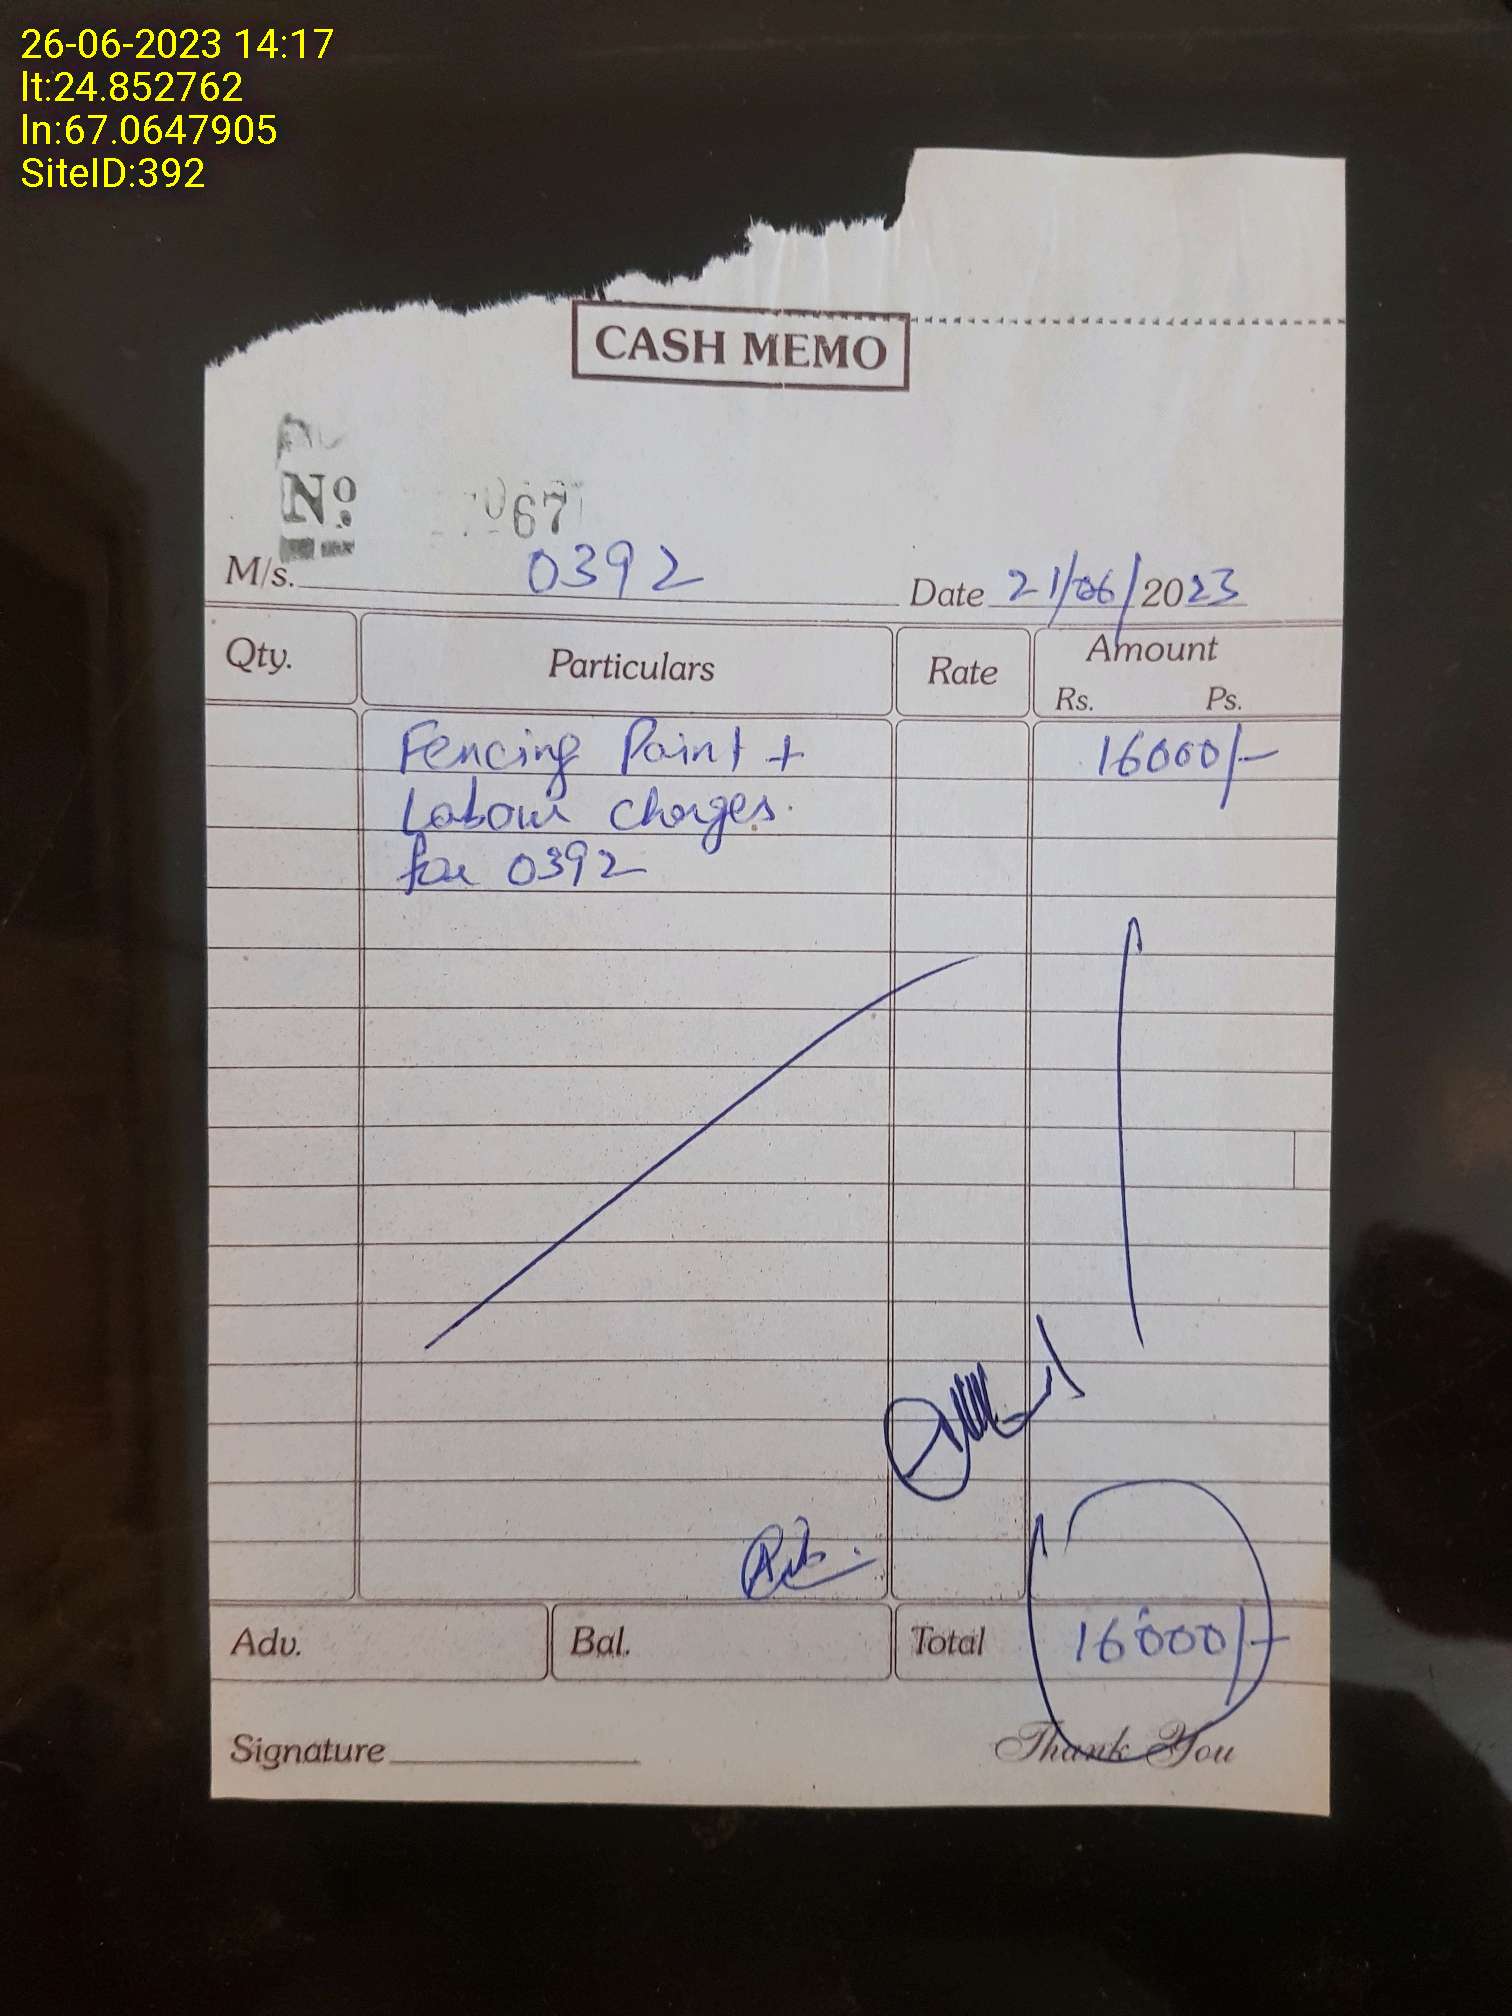 26-06-2023 14:17
lt:24.852762
ln:67.0647905
SiteID:392
CASH MEMO
No. 067
M/s. 0392 Date 21/06/2023
Qty. Particulars Rate Amount
Rs. Ps.
Fencing Paint + 16000/-
Labour charges.
for 0392
Adv. Bal. Total 16000/-
Signature Thank You